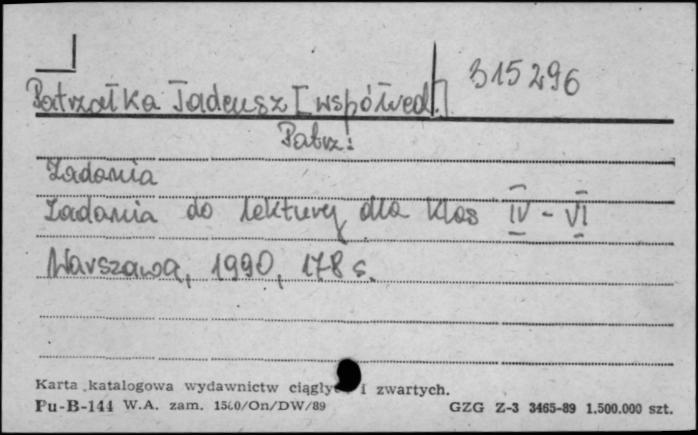 315296
Patrzałka Tadeusz [współred.]
Patrz:
Zadania
Zadania do lektury dla klas IV - VI
Warszawa, 1990, 178 s.
Karta katalogowa wydawnictw ciągłych i zwartych.
Pu-B-144 W.A. zam. 1560/On/DW/89 GZG Z-3 3465-89 1.500.000 szt.